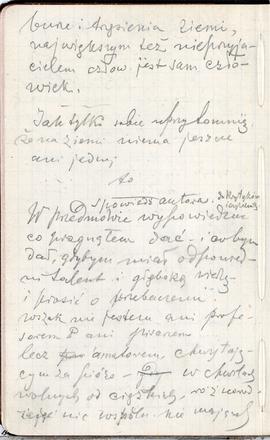 burze i trzęsienia ziemi,
największym też nieprzyja-
cielem człow. jest sam czło-
wiek.
Jak tylko sobie uprzytomnię
że na ziemi niema jeszcze
ani jednej
to
Spowiedź autora. do Krytyków
W przedmowie wypowiedzieć
co pragnąłem dać - i co bym
dał, gdybym miał odpowied-
ni talent i głęboką wiedzę
i prosić o przebaczenie
wszak nie jestem ani profe-
sorem ani pisarzem
lecz amatorem chwytają-
cym za pióro w chwilach
wolnych od ciężkiej
nic wspóln. nie mającej